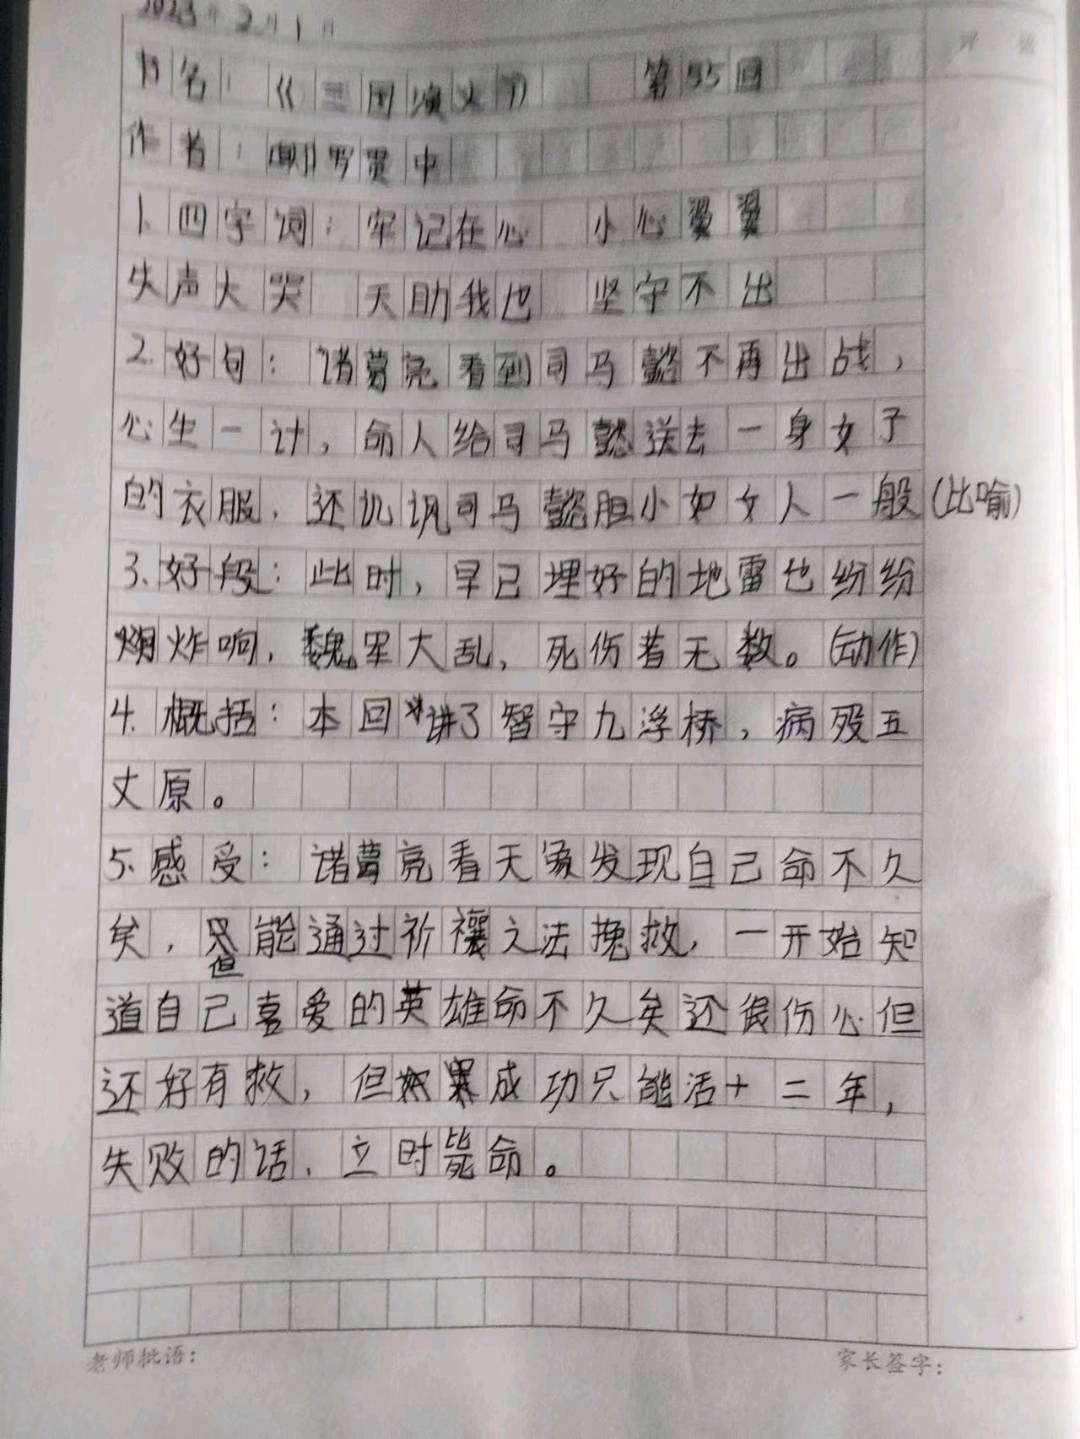 2023年2月1日
书名：《三国演义》 第55回
作者：(明)罗贯中
1.四字词：牢记在心 小心翼翼
失声大哭 天助我也 坚守不出
2.好句：诸葛亮看到司马懿不再出战，
心生一计，命人给司马懿送去一身女子
的衣服，还讥讽司马懿胆小如女人一般(比喻)
3.好段：此时，早已埋好的地雷也纷纷
炸响，魏军大乱，死伤者无数。(动作)
4.概括：本回讲了智守九浮桥，病殁五
丈原。
5.感受：诸葛亮看天象发现自己命不久
矣，只能通过祈禳之法挽救，一开始知
但
道自己喜爱的英雄命不久矣还很伤心但
还好有救，但如果成功只能活十二年，
失败的话，立时毙命。
老师批语：
家长签字：